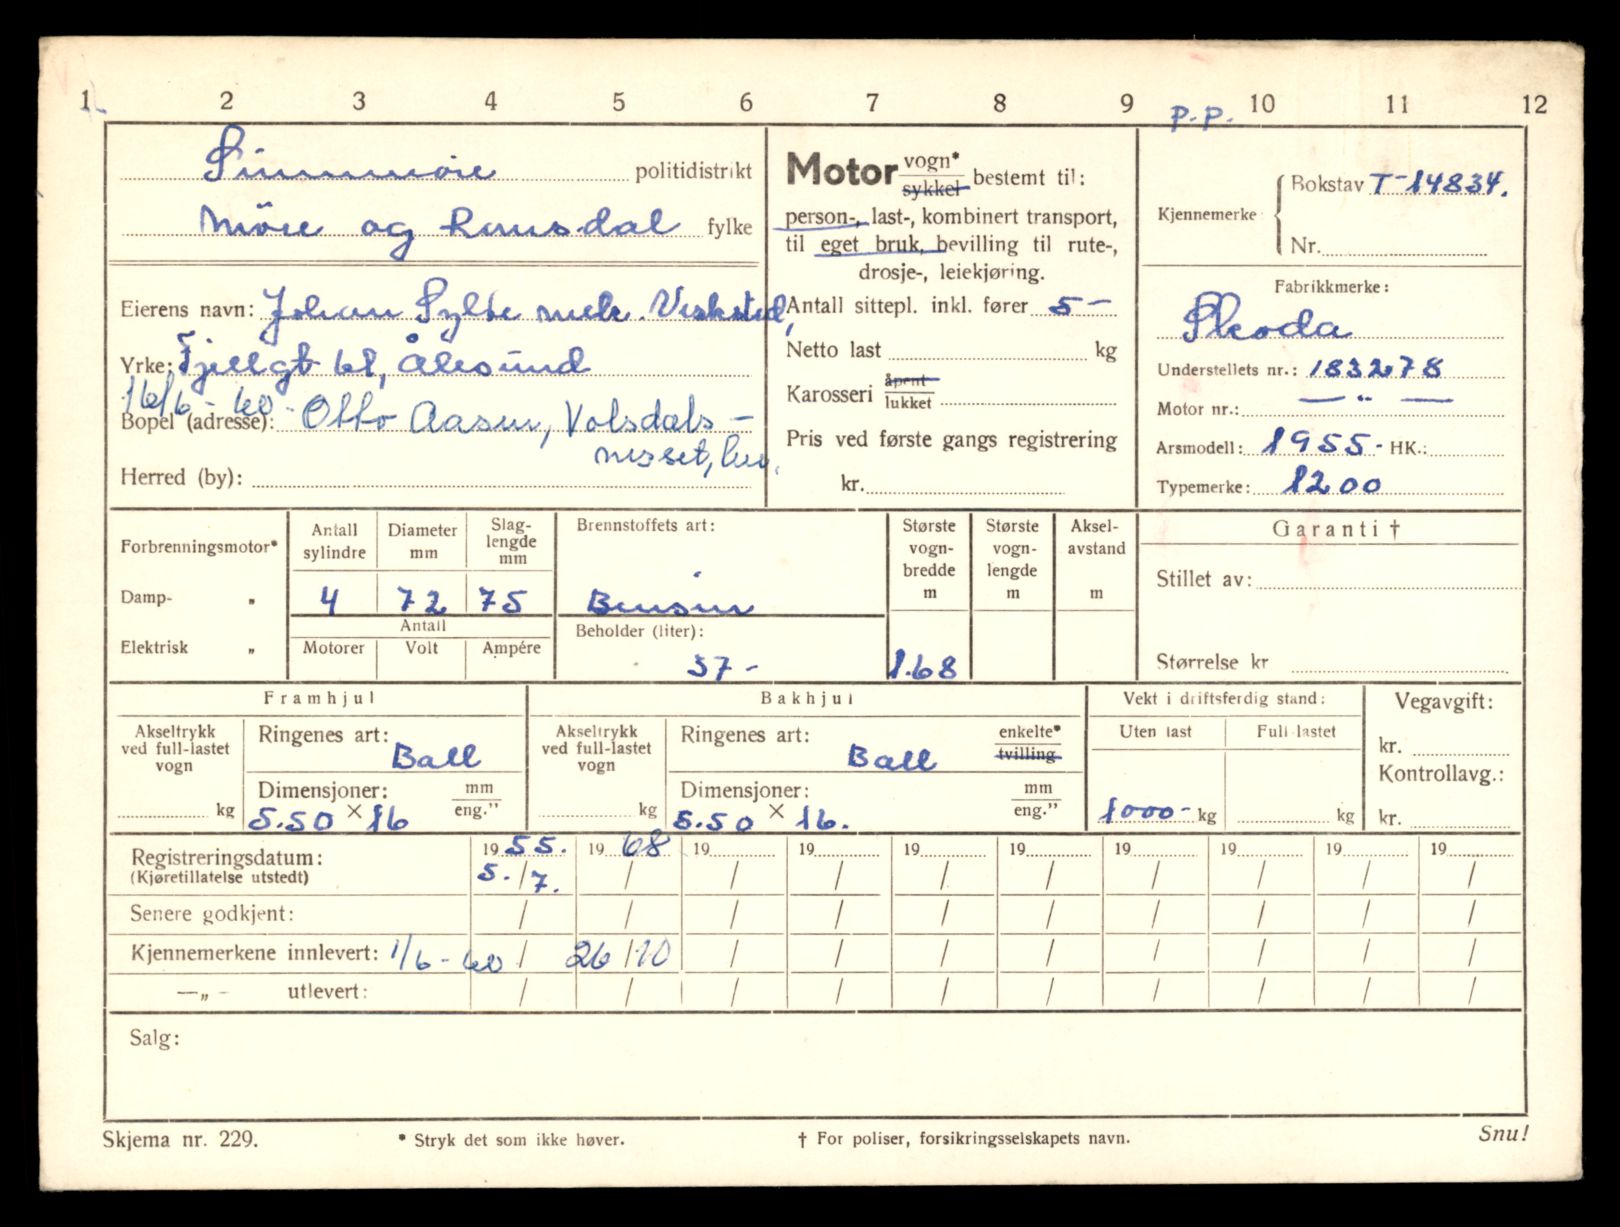 1 2 3 4 5 6 7 8 9 10 11 12
P.P.
Sunnmøre politidistrikt
Møre og Romsdal fylke
Eierens navn: Johan Sylte mek. Verksted,
Yrke: Fjellgt 68, Ålesund
16/6 - 60 -
Bopel (adresse): Otto Aasen, Volsdals-
nesset, her.
Herred (by):
Motor vogn* sykkel bestemt til:
person-, last-, kombinert transport,
til eget bruk, bevilling til rute-,
drosje-, leiekjøring.
Antall sittepl. inkl. fører 5-
Netto last kg
Karosseri åpent lukket
Pris ved første gangs registrering
kr.
Kjennemerke { Bokstav T-14834.
Nr.
Fabrikkmerke:
Skoda
Understellets nr.: 183278
Motor nr.: — " —
Årsmodell: 1955- HK.:
Typemerke: 1200
Forbrenningsmotor*
Damp- "
Elektrisk "
Antall sylindre
Diameter mm
Slag-lengde mm
4 72 75
Antall
Motorer Volt Ampére
Brennstoffets art:
Bensin
Beholder (liter):
37-
Største vogn-bredde m
1.68
Største vogn-lengde m
Aksel-avstand m
Garanti †
Stillet av:
Størrelse kr
Framhjul
Akseltrykk ved full-lastet vogn
kg
Ringenes art: Ball
Dimensjoner: mm eng."
5.50 × 16
Bakhjul
Akseltrykk ved full-lastet vogn
kg
Ringenes art: Ball enkelte* tvilling
Dimensjoner: mm eng."
5.50 × 16.
Vekt i driftsferdig stand:
Uten last Full lastet
1000- kg kg
Vegavgift:
kr.
Kontrollavg.:
kr.
Registreringsdatum: 19 55. 19 68 19 19 19 19 19 19 19 19
(Kjøretillatelse utstedt) 5./7. / / / / / / / / /
Senere godkjent: / / / / / / / / / /
Kjennemerkene innlevert: 1/6 - 60 / 26/10 / / / / / / / /
—„— utlevert: / / / / / / / / / /
Salg:
Skjema nr. 229. * Stryk det som ikke høver. † For poliser, forsikringsselskapets navn. Snu!